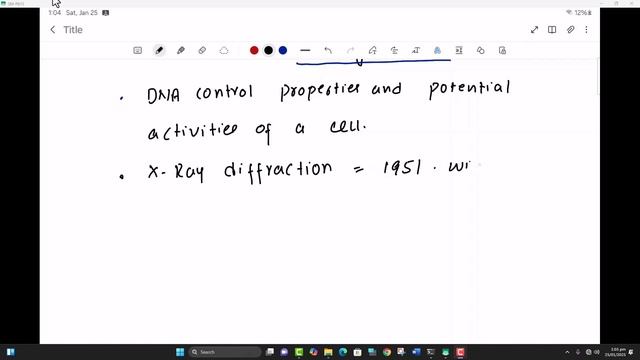 1:04 Sat, Jan 25
12%
Title
• DNA control properties and potential
activities of a cell.
• X-Ray diffraction = 1951. wi
Search
1:05 pm
25/01/2025